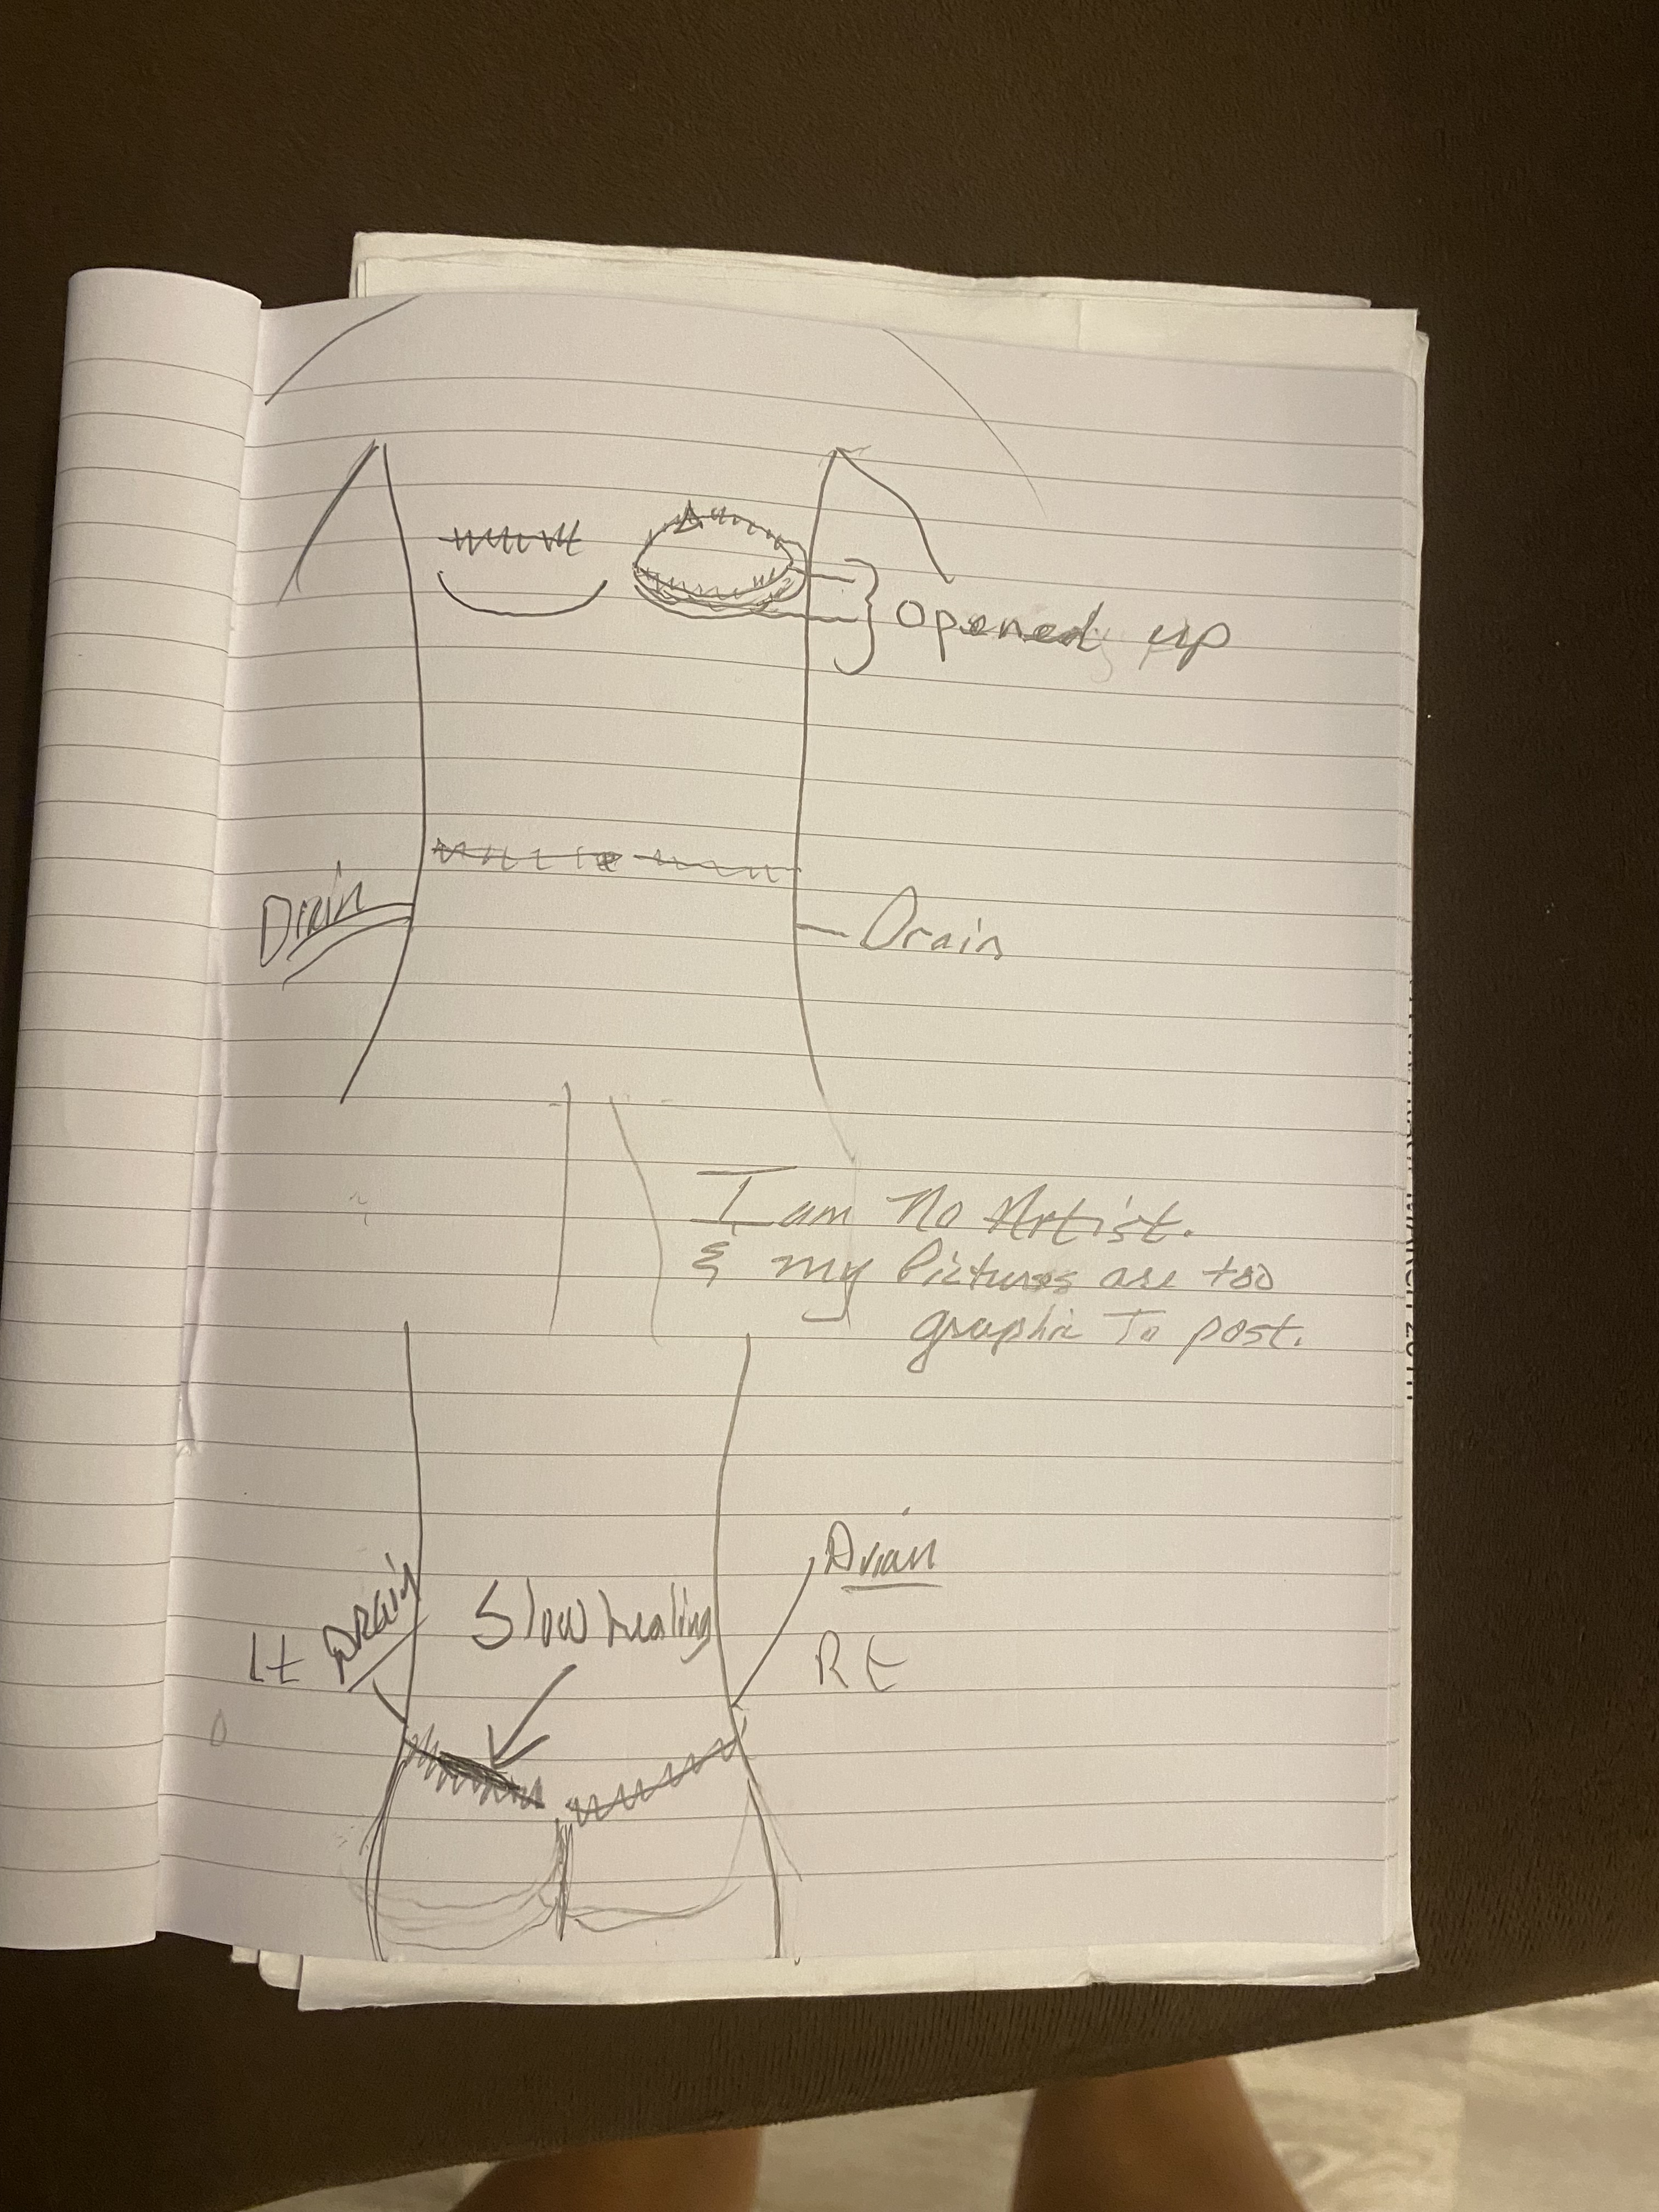 opened up
Drain
Drain
I am No Artist.
& my Pictures are too
graphic To post.
Drain
Lt Drain
Slow healing
Rt